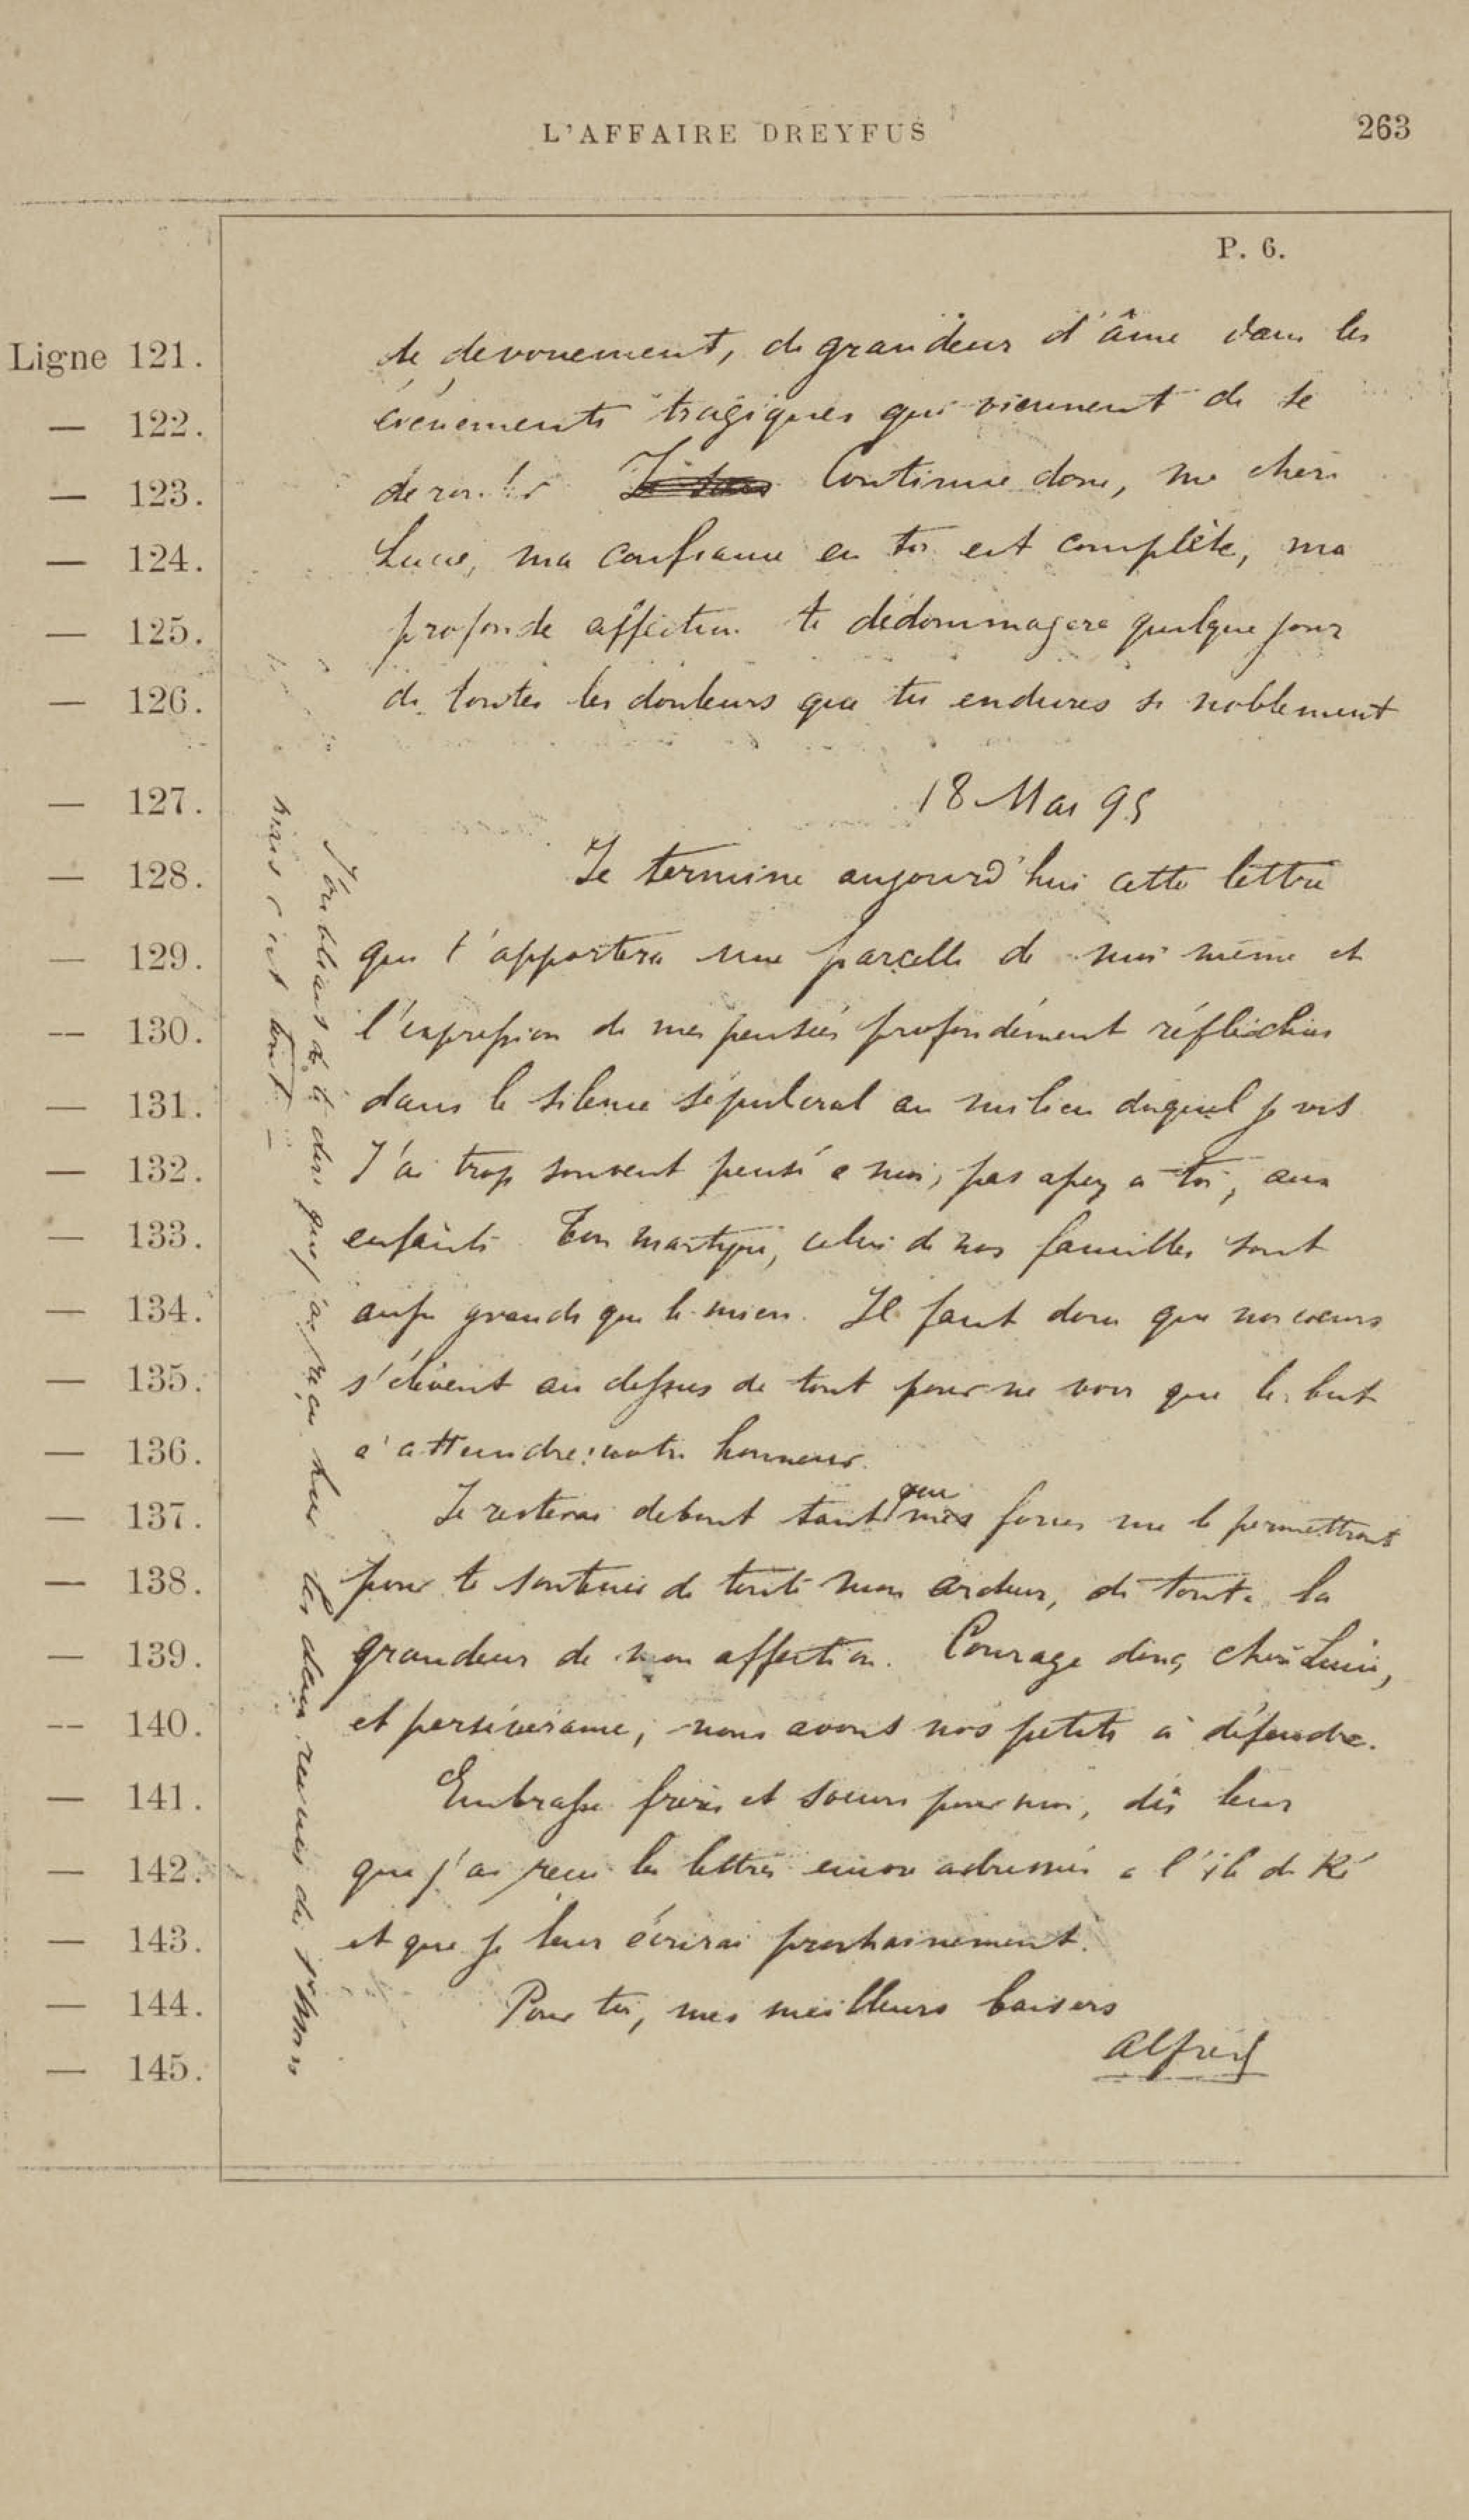 L'AFFAIRE DREYFUS
263
P. 6.
Ligne 121. de dévouement, de grandeur d'âme dans les
— 122. événements tragiques qui viennent de se
— 123. dérouler Continue donc, ma chère
— 124. Lucie, ma confiance en toi est complète, ma
— 125. profonde affection te dédommagera quelque jour
— 126. de toutes les douleurs que tu endures si noblement
— 127. 18 Mai 95
— 128. Je termine aujourd'hui cette lettre
— 129. qui t'apportera une parcelle de moi même et
— 130. l'expression de mes pensées profondément réfléchies
— 131. dans le silence sépulcral au milieu duquel je vis
— 132. J'ai trop souvent pensé à moi, pas assez à toi, aux
— 133. enfants. Ton martyre, celui de nos familles sont
— 134. aussi grands que le mien. Il faut donc que nos cœurs
— 135. s'élèvent au dessus de tout pour ne voir que le but
— 136. à atteindre: notre honneur.
— 137. Je resterai debout tant que mes forces me le permettront
— 138. pour te soutenir de toute mon ardeur, de toute la
— 139. grandeur de mon affection. Courage donc, chère Lucie,
— 140. et persévérance; nous avons nos petits à défendre.
— 141. Embrasse frères et sœurs pour moi, dis leur
— 142. que j'ai reçu les lettres encore adressées à l'île de Ré
— 143. et que je leur écrirai prochainement.
— 144. Pour toi, mes meilleurs baisers
— 145. Alfred
J'oubliais de te dire que j'ai reçu hier les deux revues du 1er Mars
mais c'est tout —